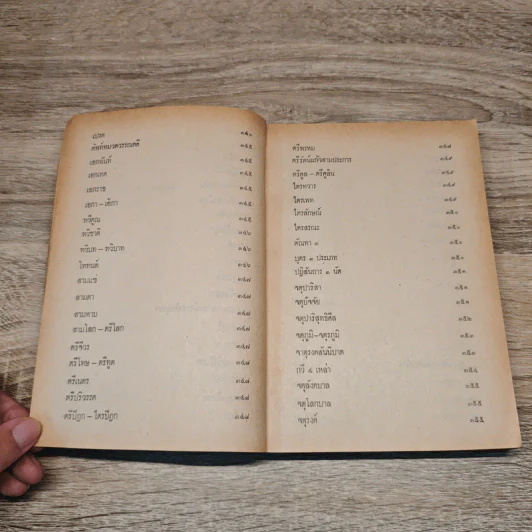 เปรต ๓๔๐
ศัพท์หมวดวรรณคดี ๓๔๕
เอกนันท์ ๓๔๕
เอกเทศ ๓๔๕
เอกราช ๓๔๕
เอกา – เอ้กา ๓๔๕
ทวิคูณ ๓๔๕
ทวิชาติ ๓๔๖
ทวิบท – ทวิบาท ๓๔๖
ไทรงค์ ๓๔๖
สามแซ่ ๓๔๗
สามตา ๓๔๗
สามหาบ ๓๔๗
สามโลก – ตรีโลก ๓๔๗
ตรีจีวร ๓๔๗
ตรีโทษ – ตรีทูต ๓๔๗
ตรีเนตร ๓๔๘
ตรีปริวรรต ๓๔๘
ตรีปิฎก – ไตรปิฎก ๓๔๘
ตรีพรหม ๓๔๘
ตรีรัตน์แก้วสามประการ ๓๔๙
ตรีศูล – ตรีศูลิน ๓๔๙
ไตรทวาร ๓๔๙
ไตรเพท ๓๔๙
ไตรลักษณ์ ๓๕๐
ไตรสรณะ ๓๕๐
ตัณหา ๓ ๓๕๐
บุตร ๓ ประเภท ๓๕๑
ปฏิสันถาร ๓ นัด ๓๕๑
จตุปาริสา ๓๕๑
จตุปัจจัย ๓๕๑
จตุปาริสุทธิศีล ๓๕๒
จตุภูมิ – จตุรภูมิ ๓๕๓
จาตุรงคสันนิบาต ๓๕๓
กวี ๔ เหล่า ๓๕๔
จตุลังคบาล ๓๕๕
จตุโลกบาล ๓๕๕
จตุรงค์ ๓๕๕